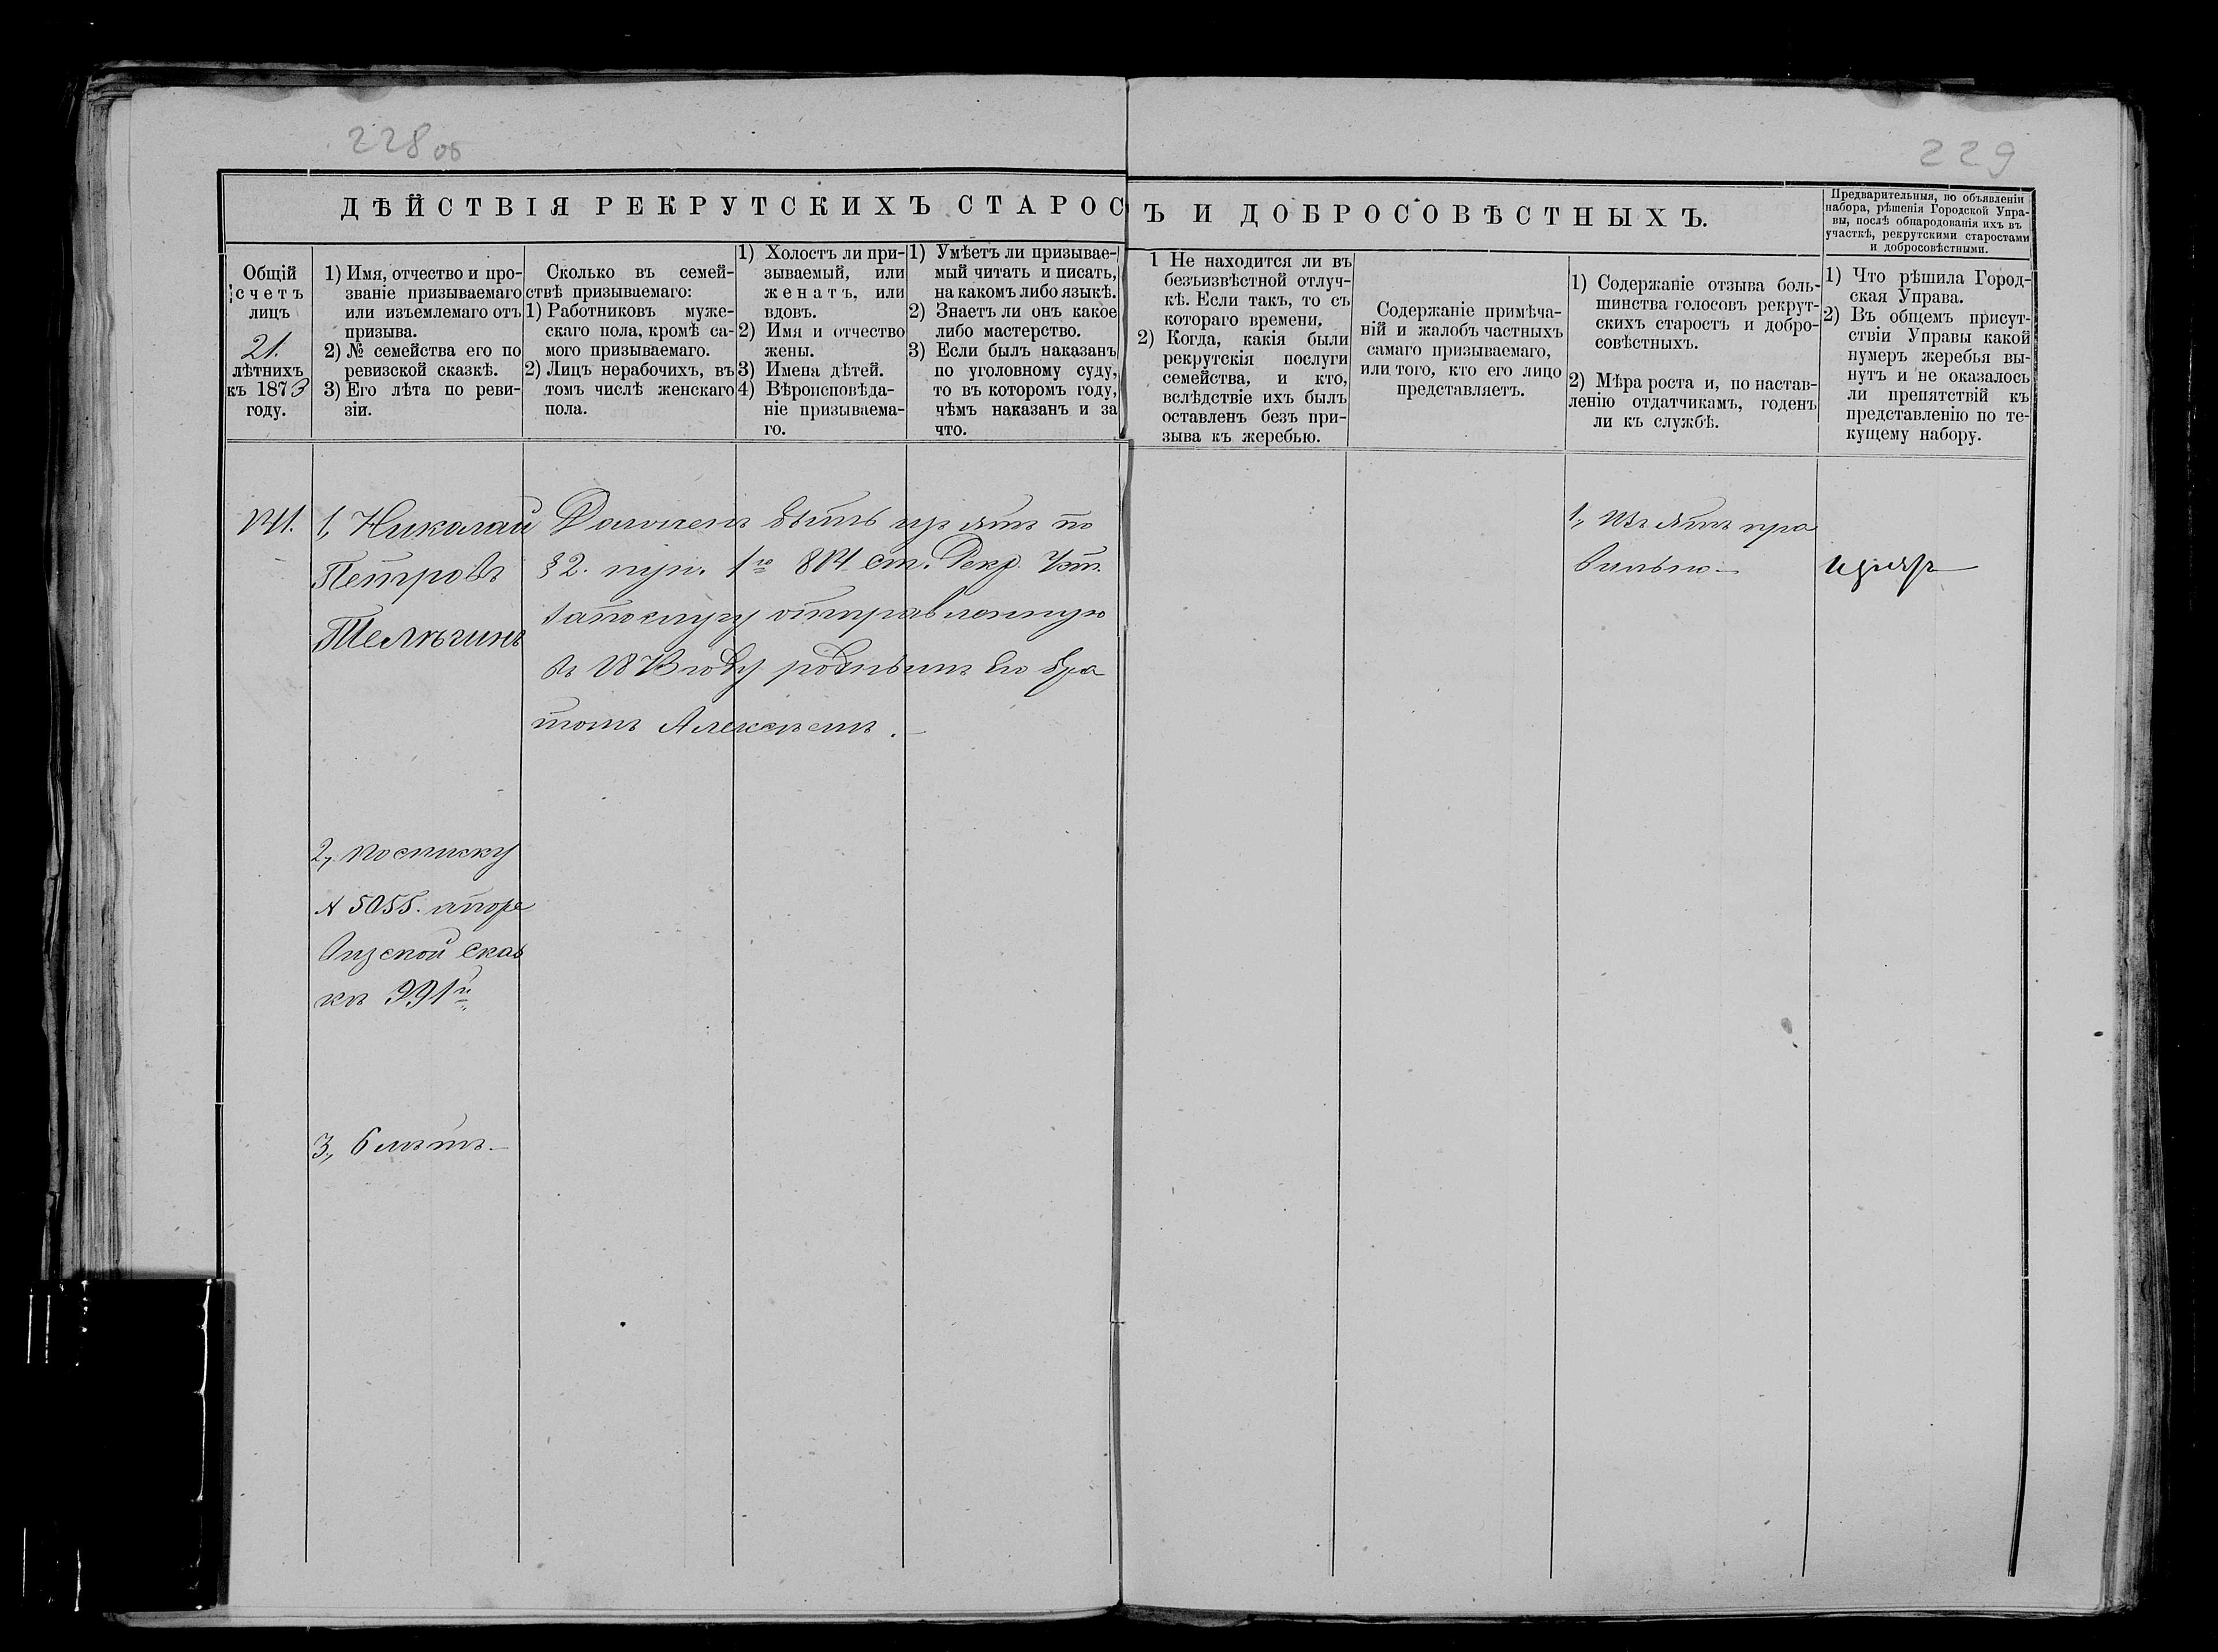 228 об
229
ДѢЙСТВІЯ РЕКРУТСКИХЪ СТАРОСТЪ И ДОБРОСОВѢСТНЫХЪ.
Предварительныя, по объявленіи
набора, рѣшенія Городской Упра-
вы, послѣ обнародованія ихъ въ
участкѣ, рекрутскими старостами
и добросовѣстными.
Общій
счетъ
лицъ
21.
лѣтнихъ
къ 1873
году.
1) Имя, отчество и про-
званіе призываемаго
или изъемлемаго отъ
призыва.
2) № семейства его по
ревизской сказкѣ.
3) Его лѣта по реви-
зіи.
Сколько въ семей-
ствѣ призываемаго:
1) Работниковъ муже-
скаго пола, кромѣ са-
мого призываемаго.
2) Лицъ нерабочихъ, въ
томъ числѣ женскаго
пола.
1) Холостъ ли при-
зываемый, или
женатъ, или
вдовъ.
2) Имя и отчество
жены.
3) Имена дѣтей.
4) Вѣроисповѣда-
ніе призываема-
го.
1) Умѣетъ ли призывае-
мый читать и писать,
на какомъ либо языкѣ.
2) Знаетъ ли онъ какое
либо мастерство.
3) Если былъ наказанъ
по уголовному суду,
то въ которомъ году,
чѣмъ наказанъ и за
что.
1 Не находится ли въ
безъизвѣстной отлуч-
кѣ. Если такъ, то съ
котораго времени.
2) Когда, какія были
рекрутскія послуги
семейства, и кто,
вслѣдствіе ихъ былъ
оставленъ безъ при-
зыва къ жеребью.
Содержаніе примѣча-
ній и жалобъ частныхъ
самаго призываемаго,
или того, кто его лицо
представляетъ.
1) Содержаніе отзыва боль-
шинства голосовъ рекрут-
скихъ старостъ и добро-
совѣстныхъ.
2) Мѣра роста и, по настав-
ленію отдатчикамъ, годенъ
ли къ службѣ.
1) Что рѣшила Город-
ская Управа.
2) Въ общемъ присут-
ствіи Управы какой
нумеръ жеребья вы-
нутъ и не оказалось
ли препятствій къ
представленію по те-
кущему набору.
1, Николай
Петровъ
Телѣгинъ
2, по списку
№ 5055. а по ре
визской сказ
кѣ 991й
3, 6 лѣтъ.
Долженъ быть изъятъ по
§ 2. прил. 1го 814 ст. Рекр. Уст.
за послугу отправленную
въ 1873 году роднымъ его бра
томъ Алексѣемъ.
1, Изъятъ пра
вильно
изъятъ